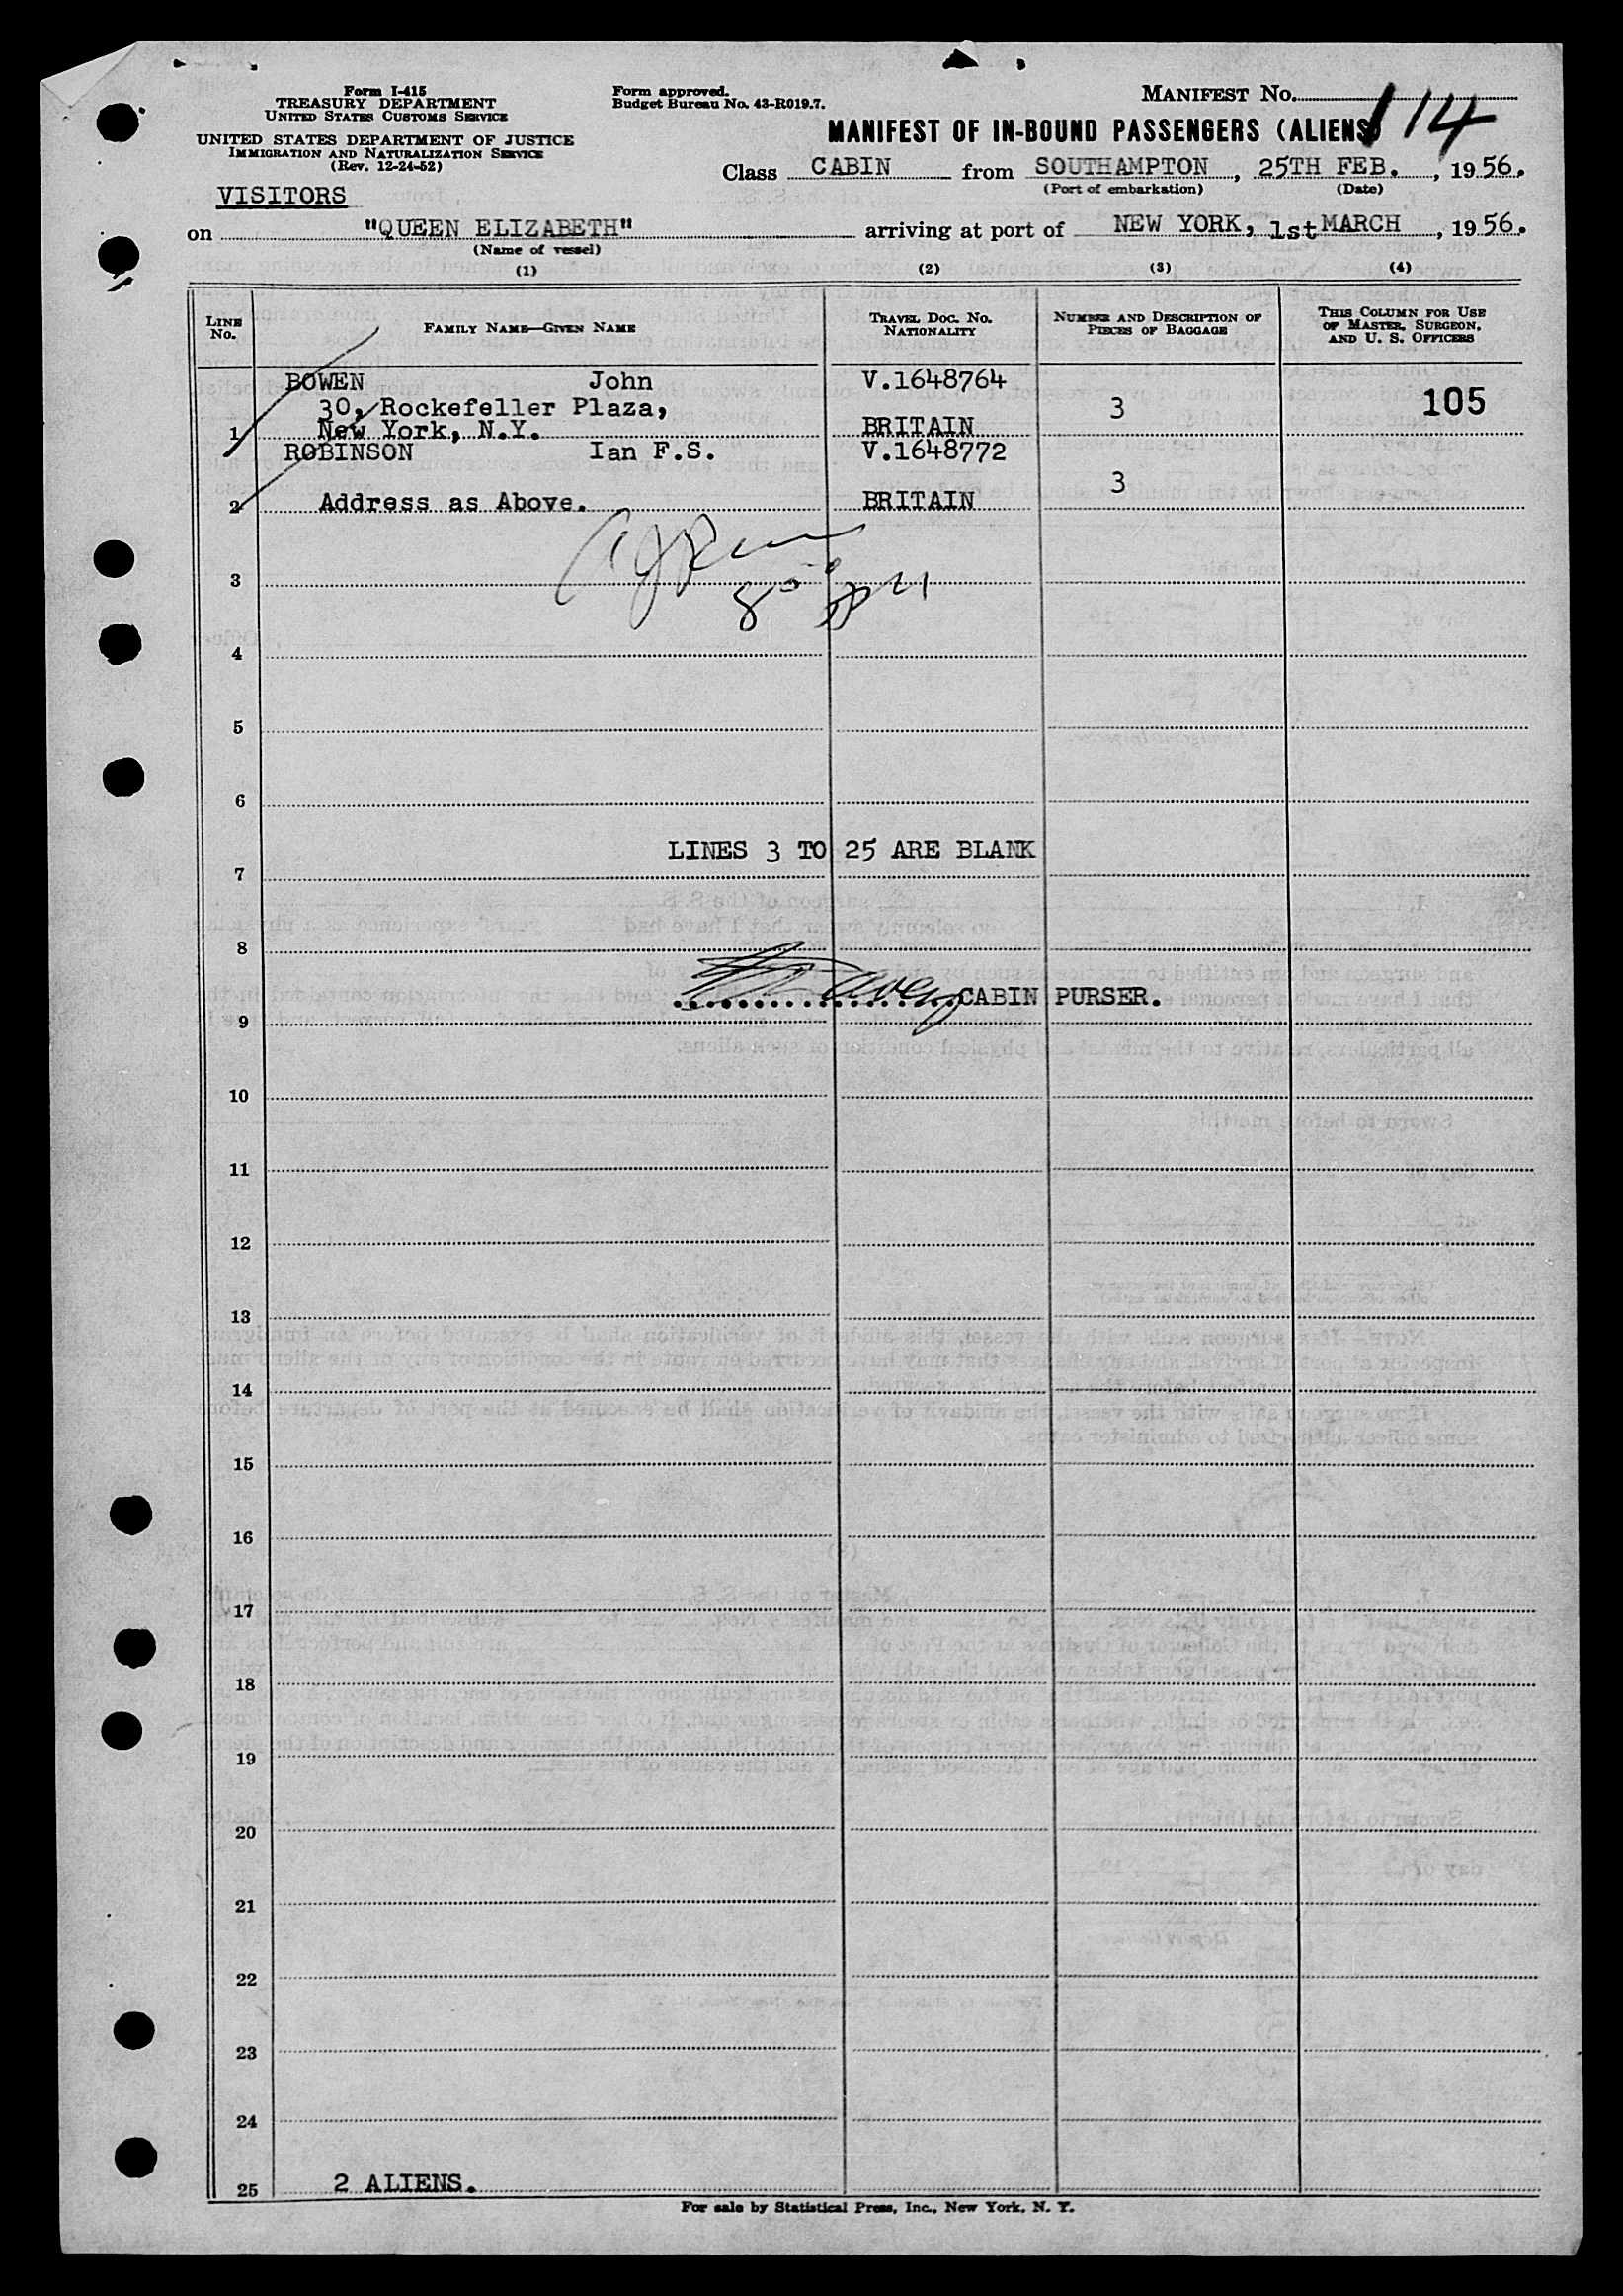 Form I-415
TREASURY DEPARTMENT
UNITED STATES CUSTOMS SERVICE
UNITED STATES DEPARTMENT OF JUSTICE
IMMIGRATION AND NATURALIZATION SERVICE
(Rev. 12-24-52)
Form approved.
Budget Bureau No. 43-R019.7.
MANIFEST No. 114
MANIFEST OF IN-BOUND PASSENGERS (ALIENS)
Class CABIN from SOUTHAMPTON, 25TH FEB., 1956.
(Port of embarkation) (Date)
VISITORS
on "QUEEN ELIZABETH" arriving at port of NEW YORK, 1st MARCH, 1956.
(Name of vessel)
(1) (2) (3) (4)
LINE No. FAMILY NAME—GIVEN NAME TRAVEL DOC. No. NATIONALITY NUMBER AND DESCRIPTION OF PIECES OF BAGGAGE THIS COLUMN FOR USE OF MASTER, SURGEON, AND U. S. OFFICERS
BOWEN John V.1648764
30, Rockefeller Plaza, 3 105
1 New York, N.Y. BRITAIN
ROBINSON Ian F.S. V.1648772
3
2 Address as Above. BRITAIN
3
4
5
6
LINES 3 TO 25 ARE BLANK
7
8
CABIN PURSER.
9
10
11
12
13
14
15
16
17
18
19
20
21
22
23
24
25 2 ALIENS.
For sale by Statistical Press, Inc., New York, N. Y.